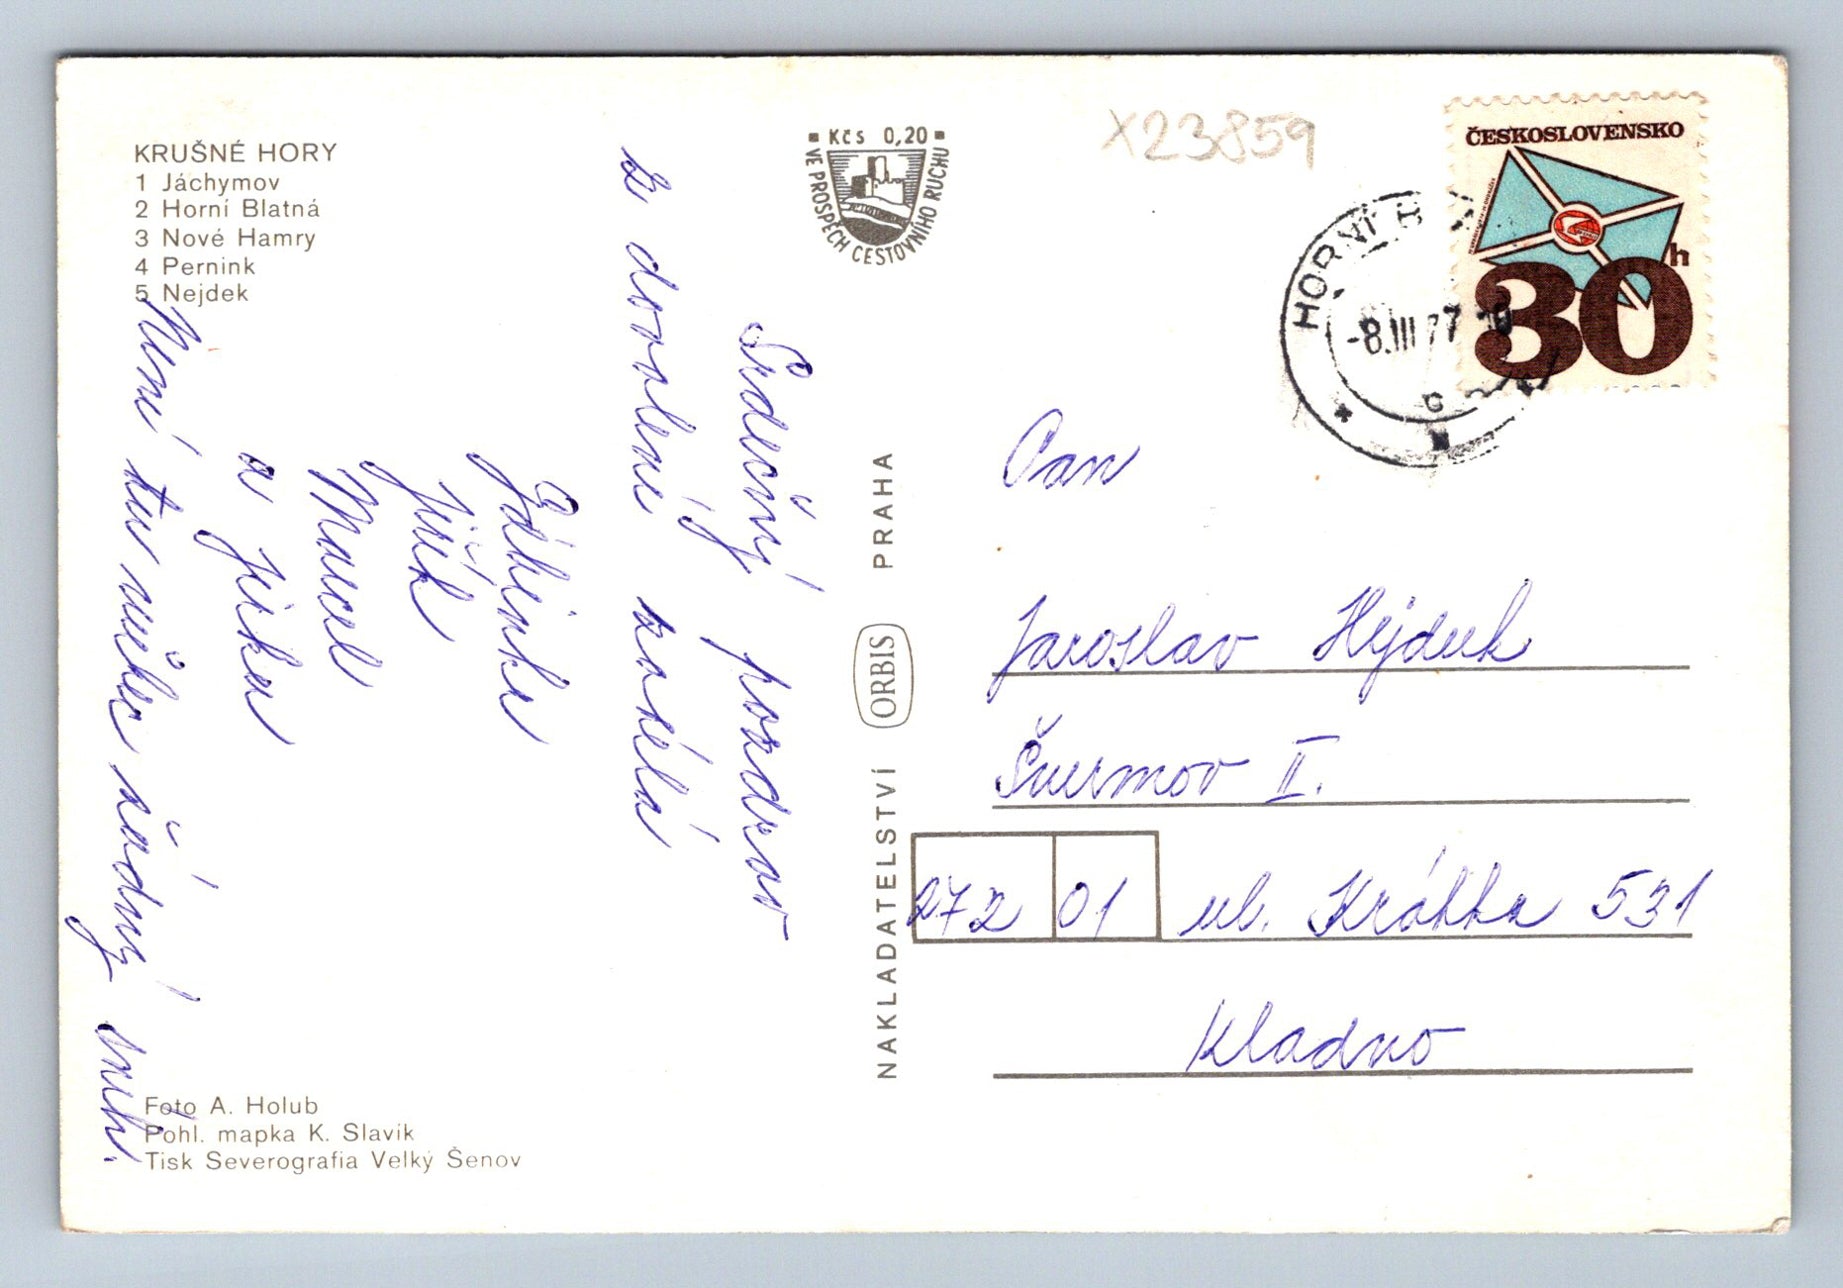 KRUŠNÉ HORY
1 Jáchymov
2 Horní Blatná
3 Nové Hamry
4 Pernink
5 Nejdek
Kčs 0,20
VE PROSPĚCH CESTOVNÍHO RUCHU
X23859
ČESKOSLOVENSKO
30h
HORNÍ B
-8.III 77-10
c
Srdečný pozdrav
z dovolené zasílá
Zdeňka
Jiřík
Marcel
a Jirka
Není tu vůbec žádný sníh.
NAKLADATELSTVÍ ORBIS PRAHA
Pan
Jaroslav Hejduk
Švermov II.
272 01 ul. Krátká 531
Kladno
Foto A. Holub
Pohl. mapka K. Slavík
Tisk Severografia Velký Šenov